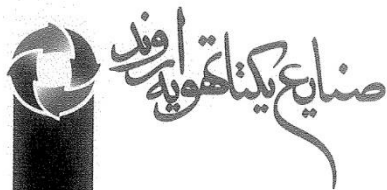 صنایع یکتا تهویه اروند